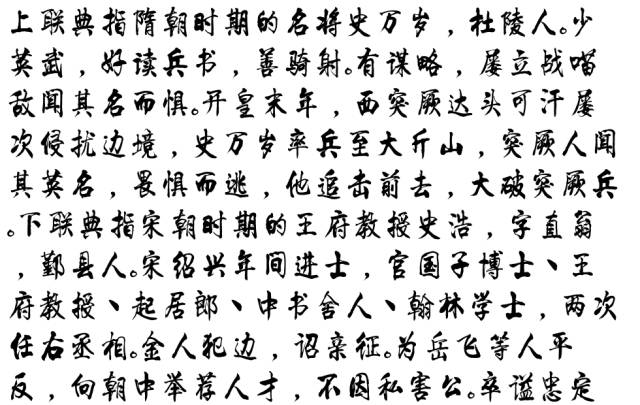 上联典指隋朝时期的名将史万岁，杜陵人。少
英武，好读兵书，善骑射。有谋略，屡立战喵
敌闻其名而惧。开皇末年，西突厥达头可汗屡
次侵扰边境，史万岁率兵至大斤山，突厥人闻
其英名，畏惧而逃，他追击前去，大破突厥兵
。下联典指宋朝时期的王府教授史浩，字直翁
，鄞县人。宋绍兴年间进士，官国子博士、王
府教授、起居郎、中书舍人、翰林学士，两次
任右丞相。金人犯边，诏亲征。为岳飞等人平
反，向朝中举荐人才，不因私害公。卒谥忠定